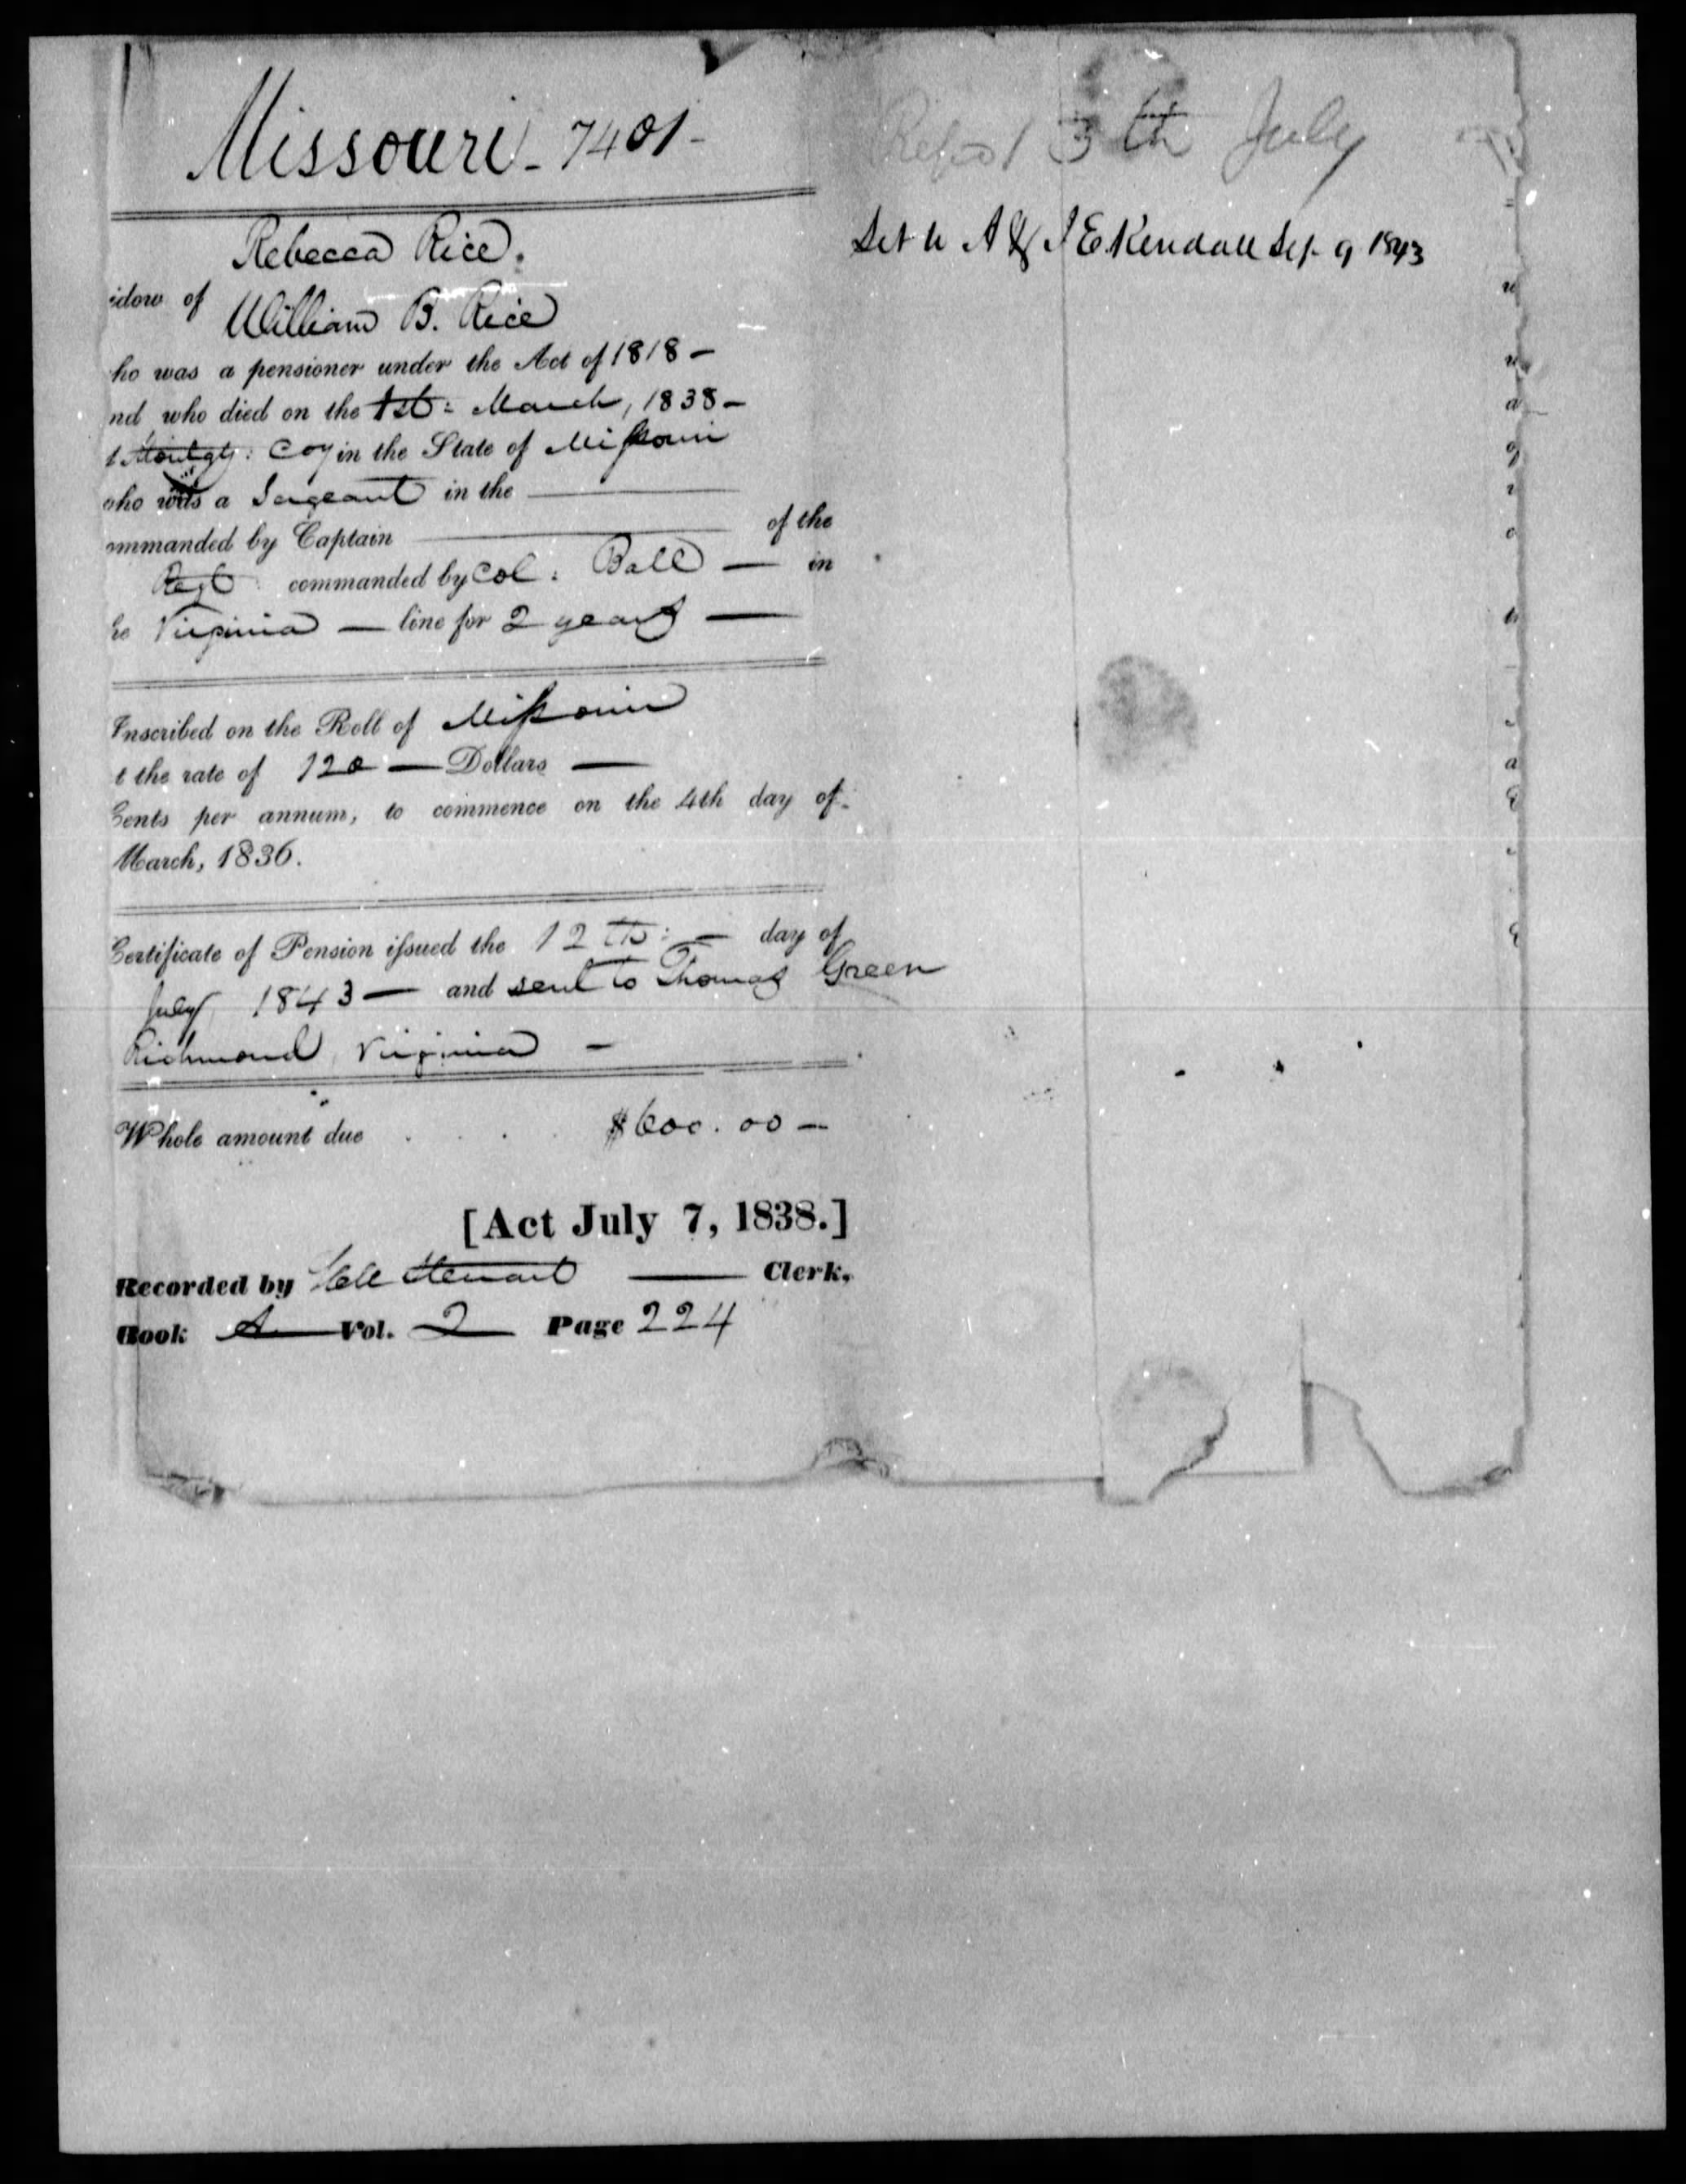 Missouri - 7401 -
Rebecca Rice.
idow of
William B. Rice
ho was a pensioner under the Act of 1818 —
nd who died on the 1st: March, 1838 —
t Montgy: Coy in the State of Missouri
who was a Sergeant in the ———
ommanded by Captain ——— of the
Regt commanded by Col: Ball — in
he Virginia — line for 2 years —
Inscribed on the Roll of Missouri
t the rate of 120 — Dollars —
Cents per annum, to commence on the 4th day of
March, 1836.
Certificate of Pension issued the 12th: — day of
July 1843 — and sent to Thomas Green
Richmond, Virginia —
Whole amount due . . . $600.00 —
[Act July 7, 1838.]
Recorded by Stewart ——— Clerk,
Book A — Vol. 2 Page 224
5th July
E. Kendall Sep. 9 1843